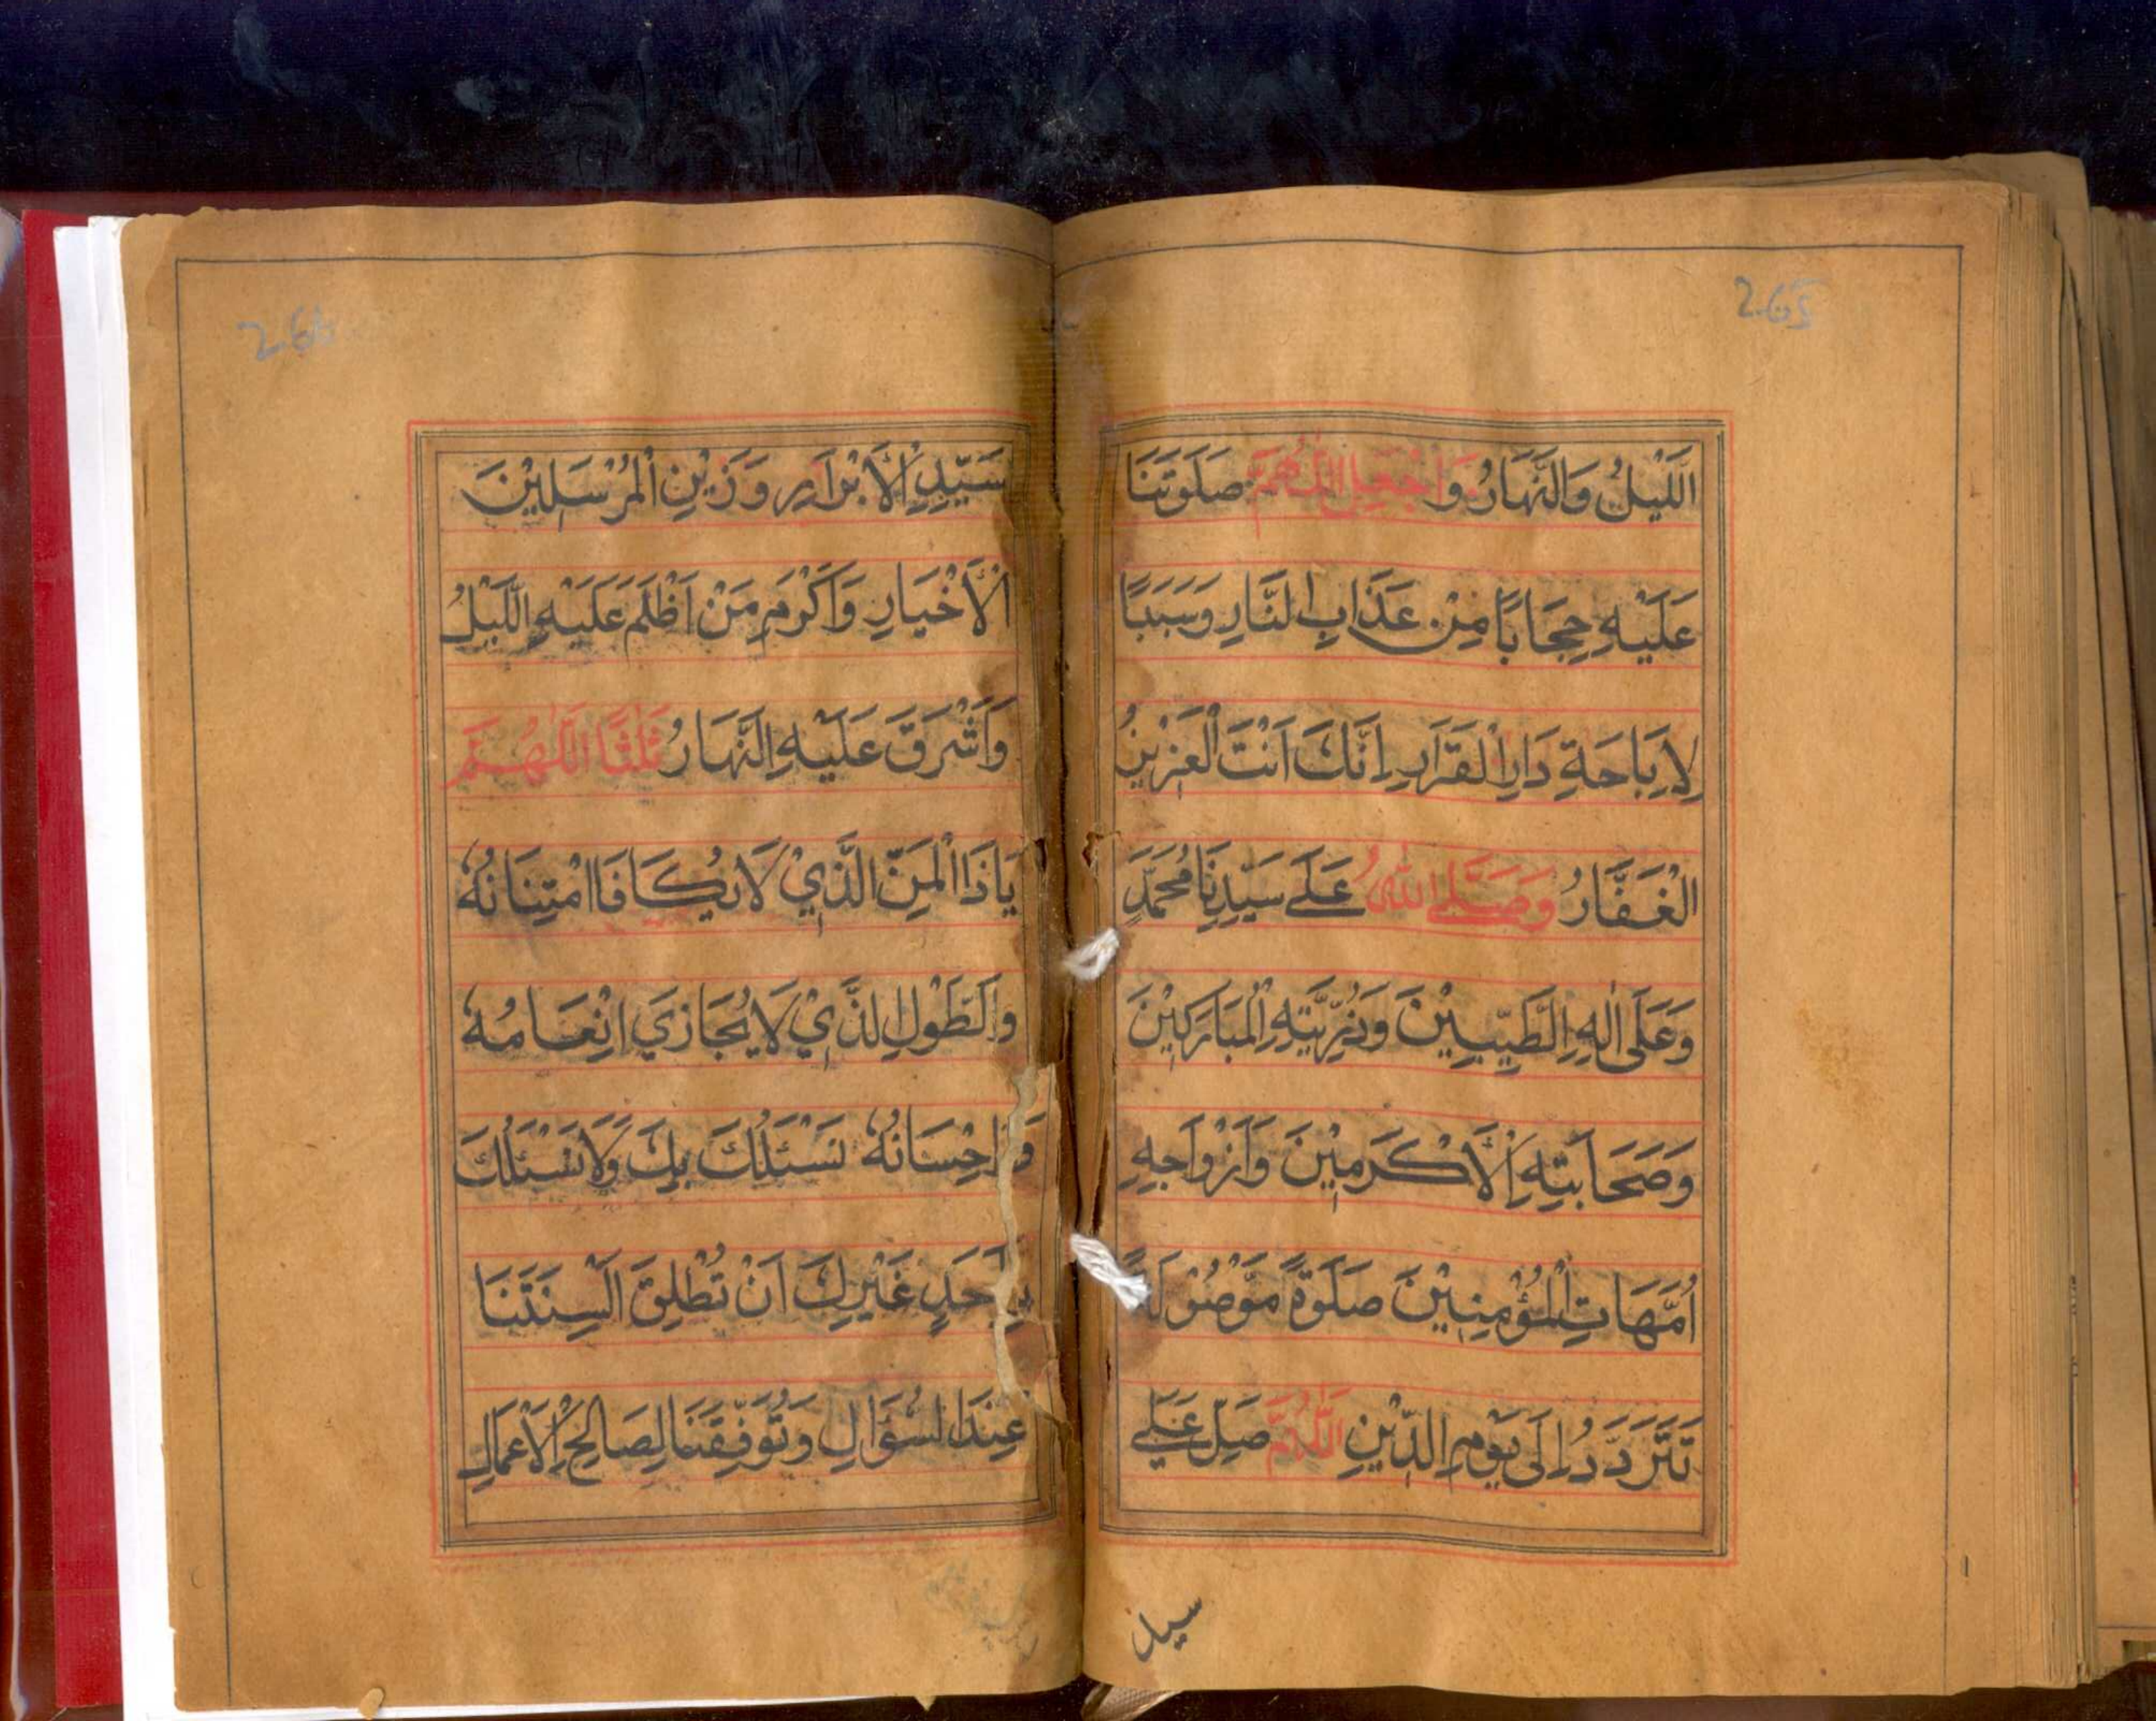 265
اللَّيْلُ وَالنَّهَارُ وَاجْعَلِ اللّٰهُمَّ صَلَوٰتَنَا
عَلَيْهِ حِجَابًا مِنْ عَذَابِ النَّارِ وَسَبَبًا
لِاِبَاحَةِ دَارِ الْقَرَارِ اِنَّكَ اَنْتَ الْعَزِيْزُ
الْغَفَّارُ وَصَلَّى اللّٰهُ عَلٰى سَيِّدِنَا مُحَمَّدٍ
وَعَلَى اٰلِهِ الطَّيِّبِيْنَ وَذُرِّيَّتِهِ الْمُبَارَكِيْنَ
وَصَحَابَتِهِ الْاَكْرَمِيْنَ وَاَزْوَاجِهٖ
اُمَّهَاتِ الْمُؤْمِنِيْنَ صَلٰوةً مَّوْصُوْلَةً
تَتَرَدَّدُ اِلَى يَوْمِ الدِّيْنِ اَللّٰهُمَّ صَلِّ عَلٰى
سيد
سَيِّدِ الْاَبْرَارِ وَزَيْنِ الْمُرْسَلِيْنَ
الْاَخْيَارِ وَاَكْرَمِ مَنْ اَظْلَمَ عَلَيْهِ اللَّيْلُ
وَاَشْرَقَ عَلَيْهِ النَّهَارُ ثَلٰثًا اَللّٰهُمَّ
يَا ذَا الْمَنِّ الَّذِيْ لَا يُكَافَا امْتِنَانُهٗ
وَالطَّوْلِ الَّذِيْ لَا يُجَازَى اِنْعَامُهٗ
وَاِحْسَانُهٗ نَسْئَلُكَ بِكَ وَلَا نَسْئَلُكَ
بِاَحَدٍ غَيْرِكَ اَنْ تُطْلِقَ اَلْسِنَتَنَا
عِنْدَ السُّؤَالِ وَتُوَفِّقَنَا لِصَالِحِ الْاَعْمَالِ